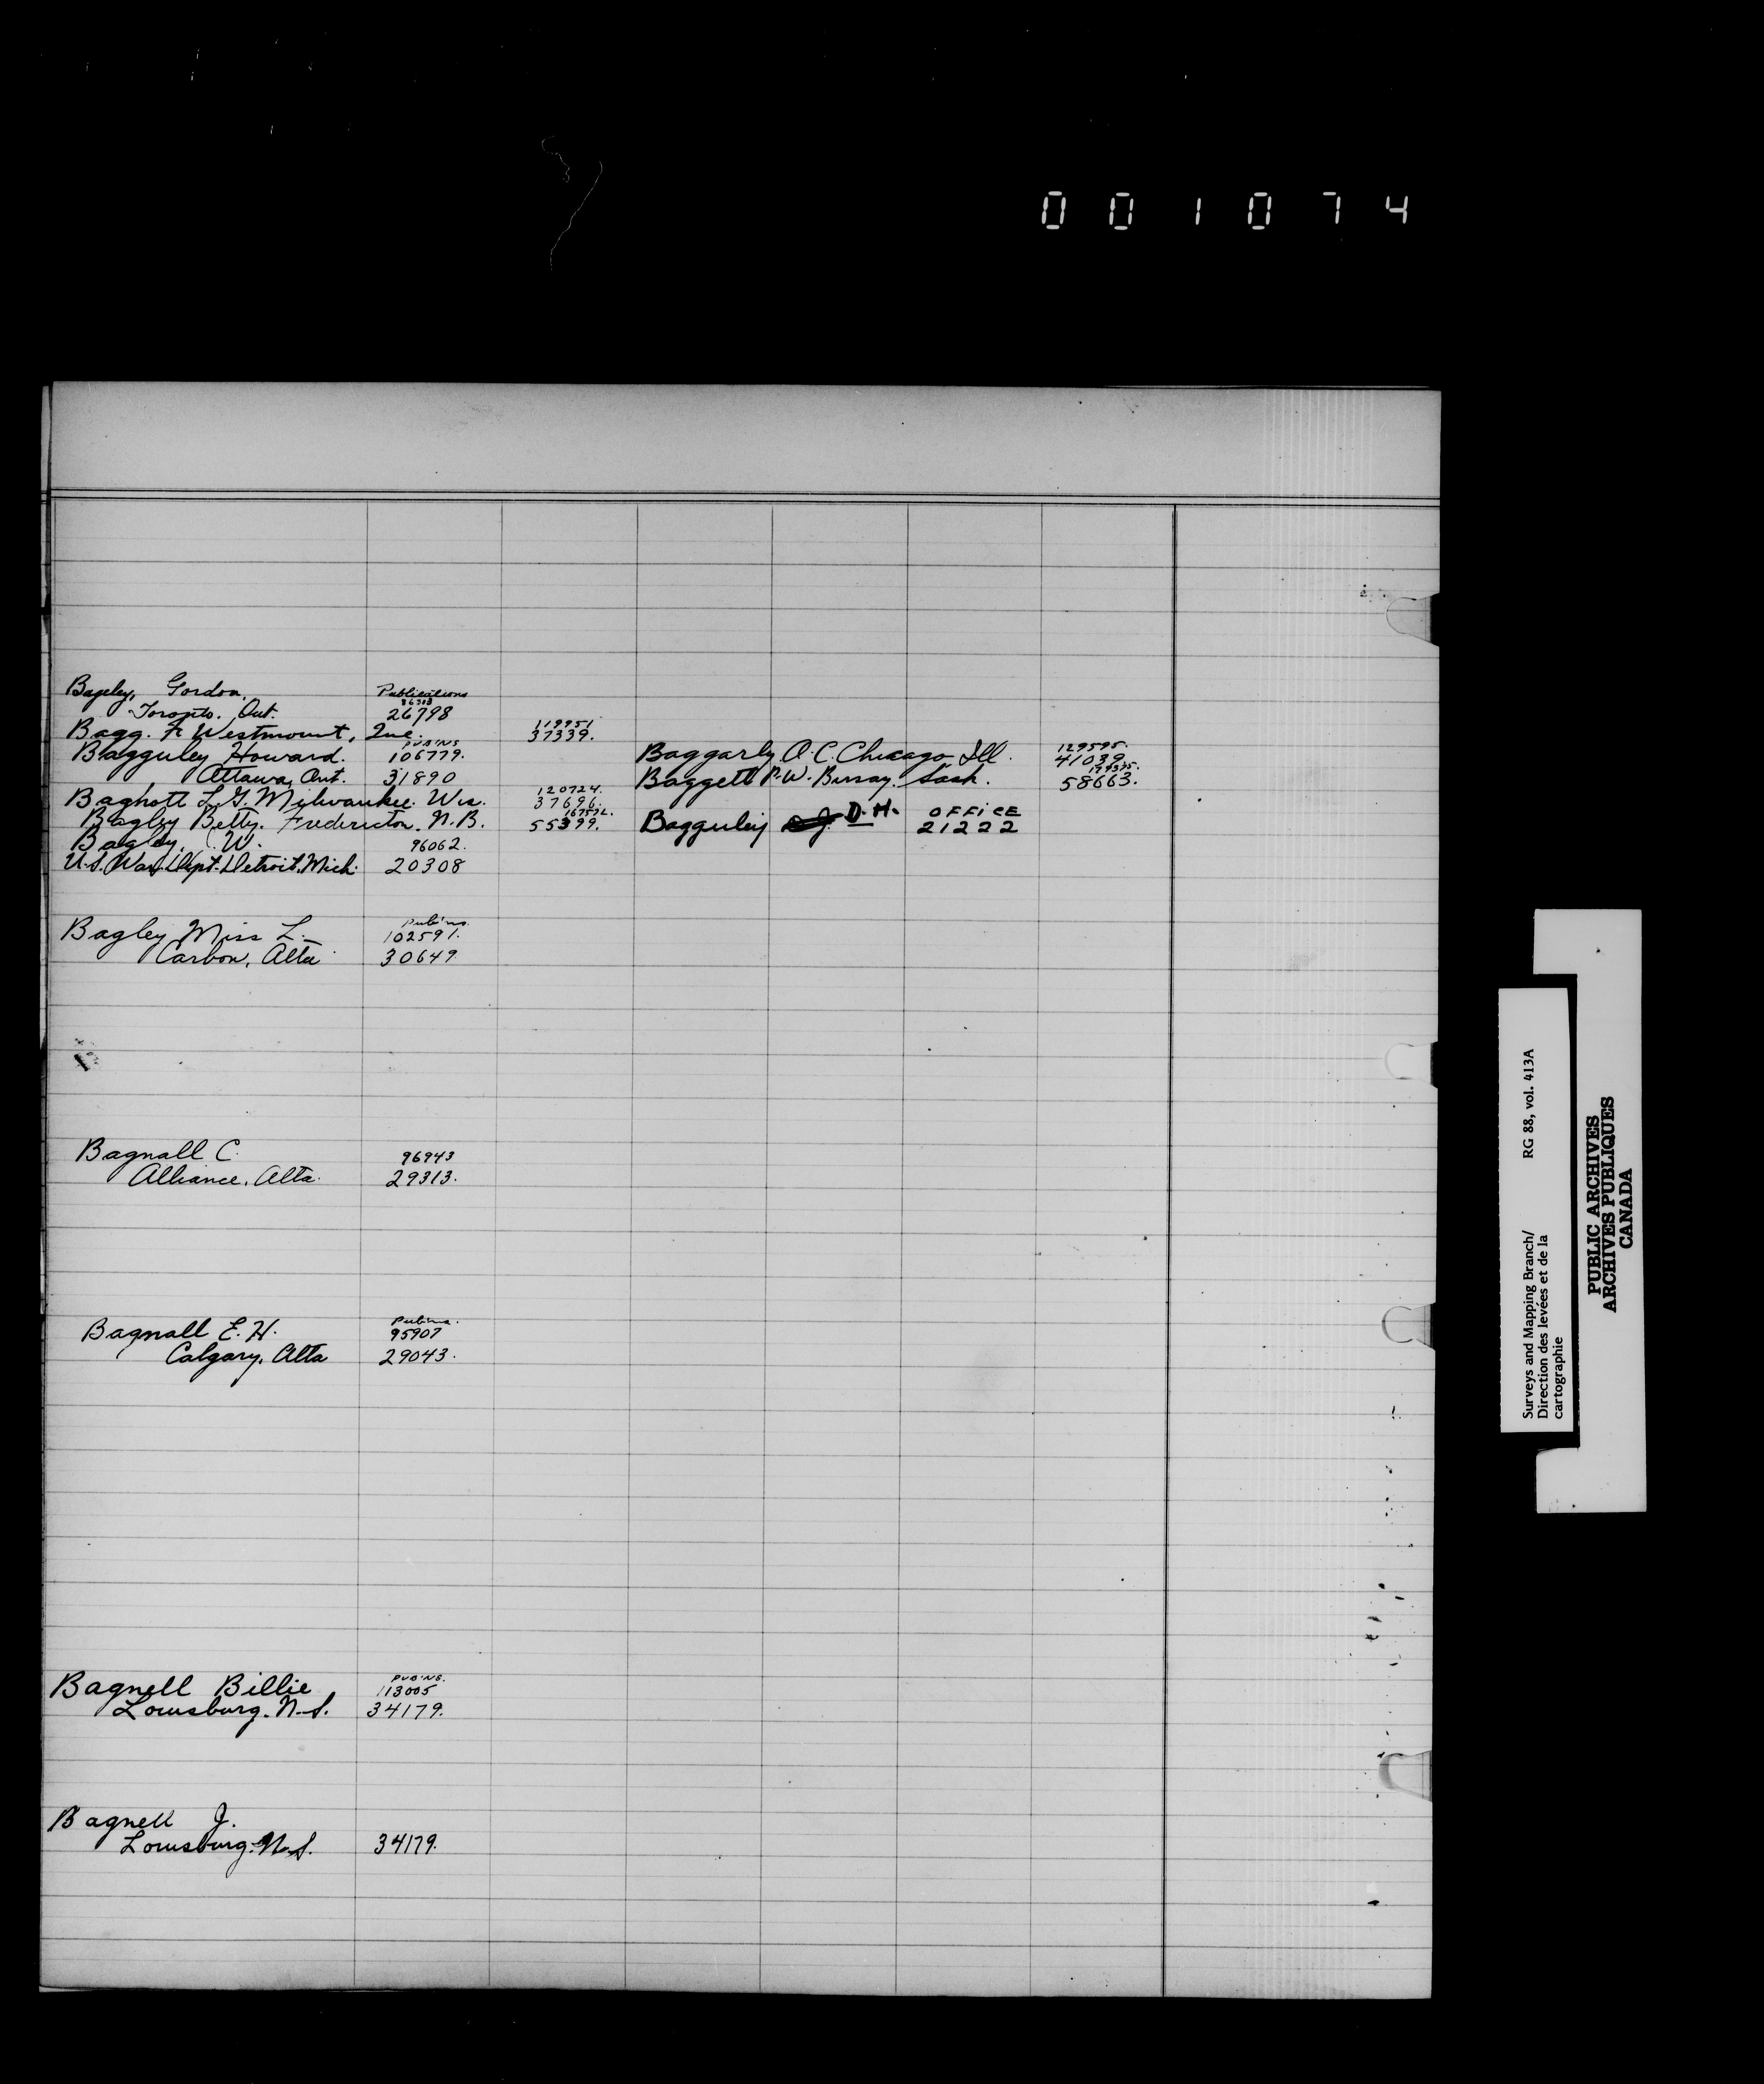 001074
Bagley, Gordon. Publications
86303
Toronto. Ont. 26798
119951
Bagg. F. Westmount, Que. 37339.
PUB'NS
Bagguley Howard. 106779.
Ottawa, Ont. 31890
120724.
Baghott L.G. Milwaukee. Wis. 37696.
Bagley Betty. Fredericton. N.B. 55399.
Bagley, C.W. 96062.
U.S. War. Dept. Detroit. Mich. 20308
129595.
Baggarly O.C. Chicago Ill. 41039
Baggett P.W. Sask. 58663.
Bagguley D.H. OFFICE
21222
Pub'ns.
Bagley Miss L. 102591.
Carbon, Alta 30649
Bagnall C. 96943
Alliance, Alta. 29313.
Pub'ns.
Bagnall E.H. 95907
Calgary, Alta 29043.
PUB'NS.
Bagnell Billie 113005
Louisburg. N.S. 34179.
Bagnell J.
Louisburg. N.S. 34179.
Surveys and Mapping Branch/ RG 88, vol. 413A
Direction des levées et de la
cartographie
PUBLIC ARCHIVES
ARCHIVES PUBLIQUES
CANADA